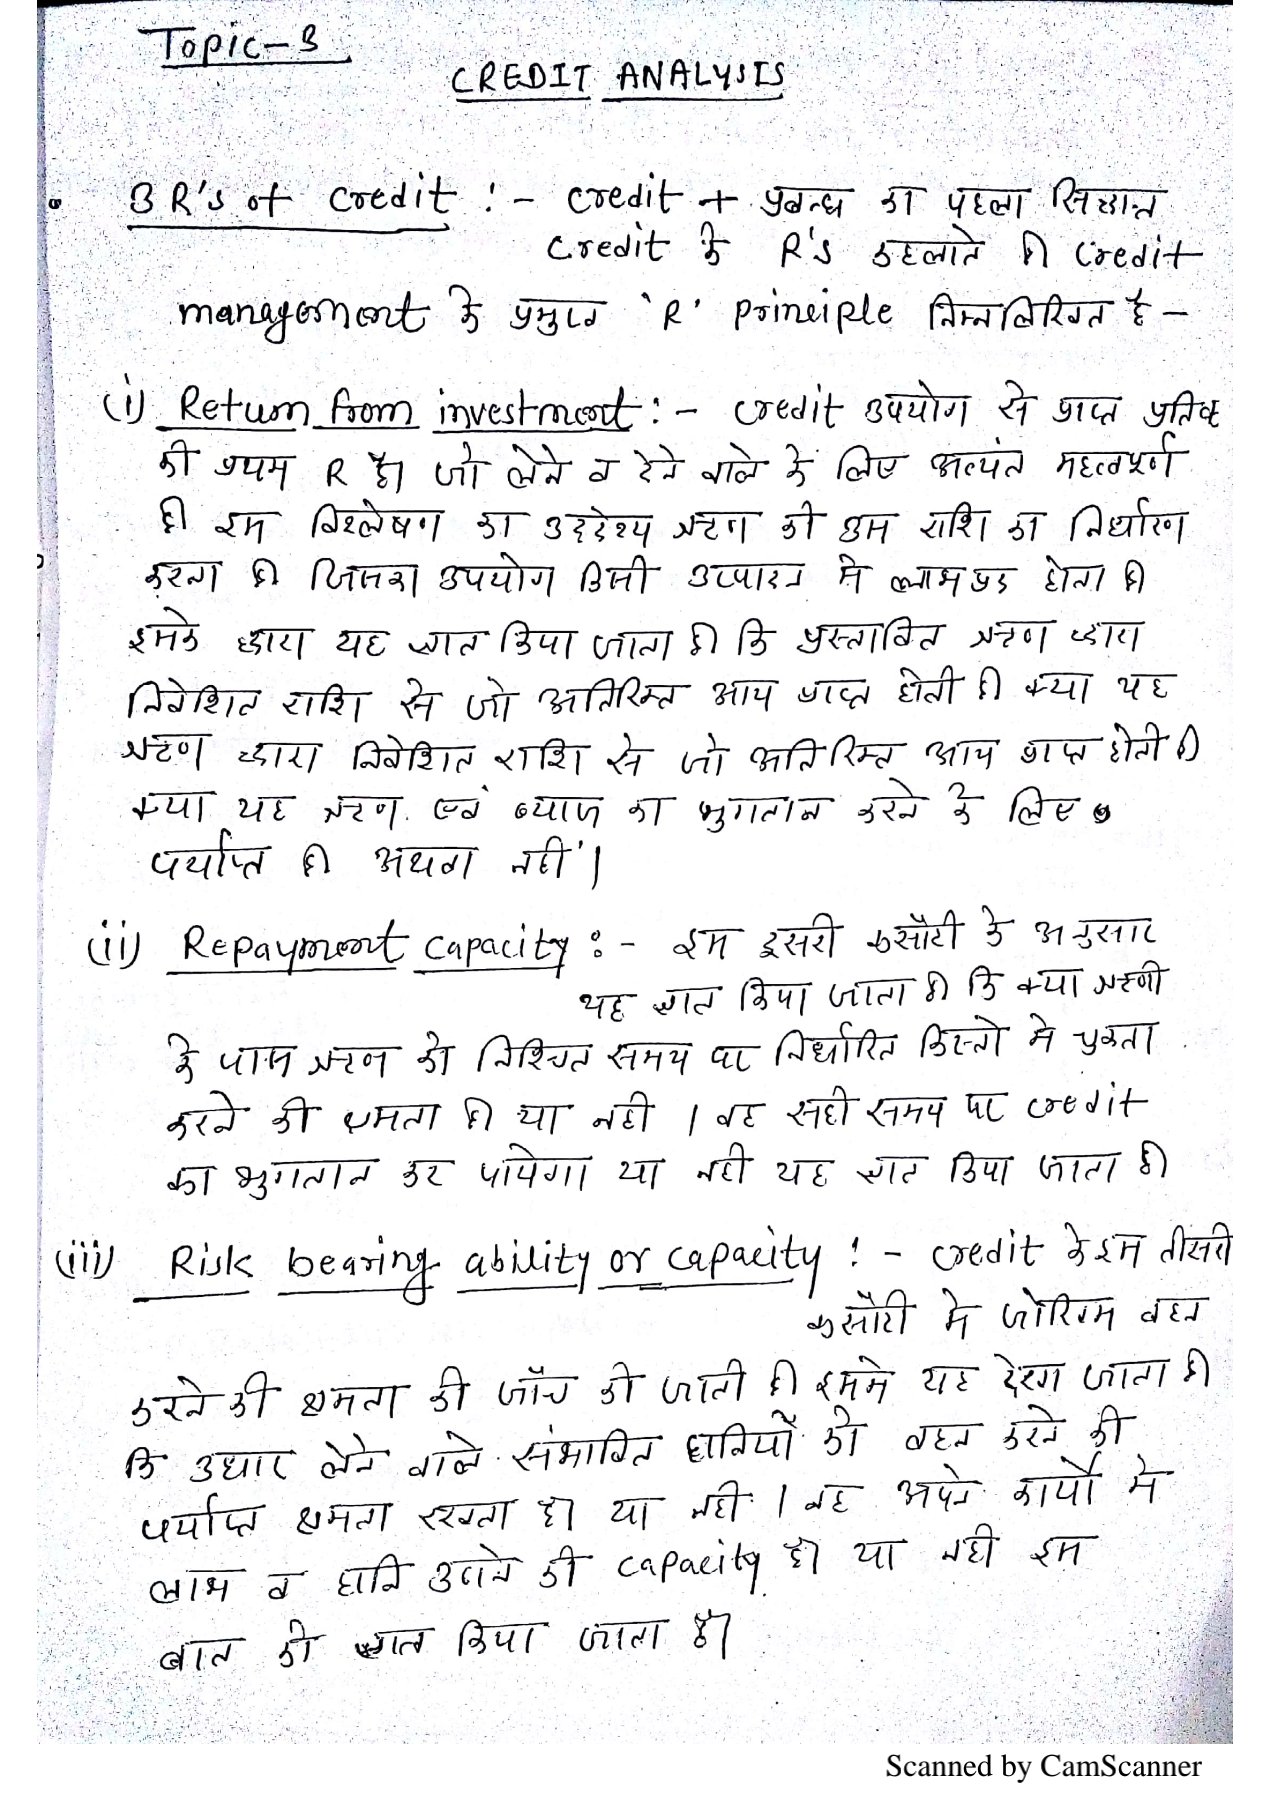 Topic-3
CREDIT ANALYSIS
3 R's of Credit :- Credit + प्रबन्ध का पहला सिद्धान्त
Credit के R's कहलाते है। Credit
management के प्रमुख 'R' Principle निम्नलिखित है -
(i) Return from investment :- Credit उपयोग से प्राप्त प्रतिफल
की प्रथम R है। जो लेने व देने वाले के लिए अत्यंत महत्वपूर्ण
है। इस विश्लेषण का उद्देश्य ऋण की उस राशि का निर्धारण
करना है। जिसका उपयोग किसी उत्पादन मे लाभप्रद होता है।
इसके द्वारा यह ज्ञात किया जाता है। कि प्रस्तावित ऋण द्वारा
निवेशित राशि से जो अतिरिक्त आय प्राप्त होती है। क्या यह
ऋण द्वारा निवेशित राशि से जो अतिरिक्त आय प्राप्त होती है।
क्या यह ऋण एवं ब्याज का भुगतान करने के लिए
पर्याप्त है। अथवा नहीं।
(ii) Repayment capacity :- इस दूसरी कसौटी के अनुसार
यह ज्ञात किया जाता है। कि क्या ऋणी
के पास ऋण को निश्चित समय पर निर्धारित किस्तो मे चुकता
करने की क्षमता है। या नही । वह सही समय पर credit
का भुगतान कर पायेगा या नही यह ज्ञात किया जाता है।
(iii) Risk bearing ability or capacity :- Credit के इस तीसरी
कसौटी मे जोखिम वहन
करने की क्षमता की जाँच की जाती है। इसमे यह देखा जाता है।
कि उधार लेने वाले संभावित हानियों को वहन करने की
पर्याप्त क्षमता रखता है। या नही । वह अपने कार्यो मे
लाभ व हानि उठाने की capacity है। या नही इस
बात को ज्ञात किया जाता है।
Scanned by CamScanner